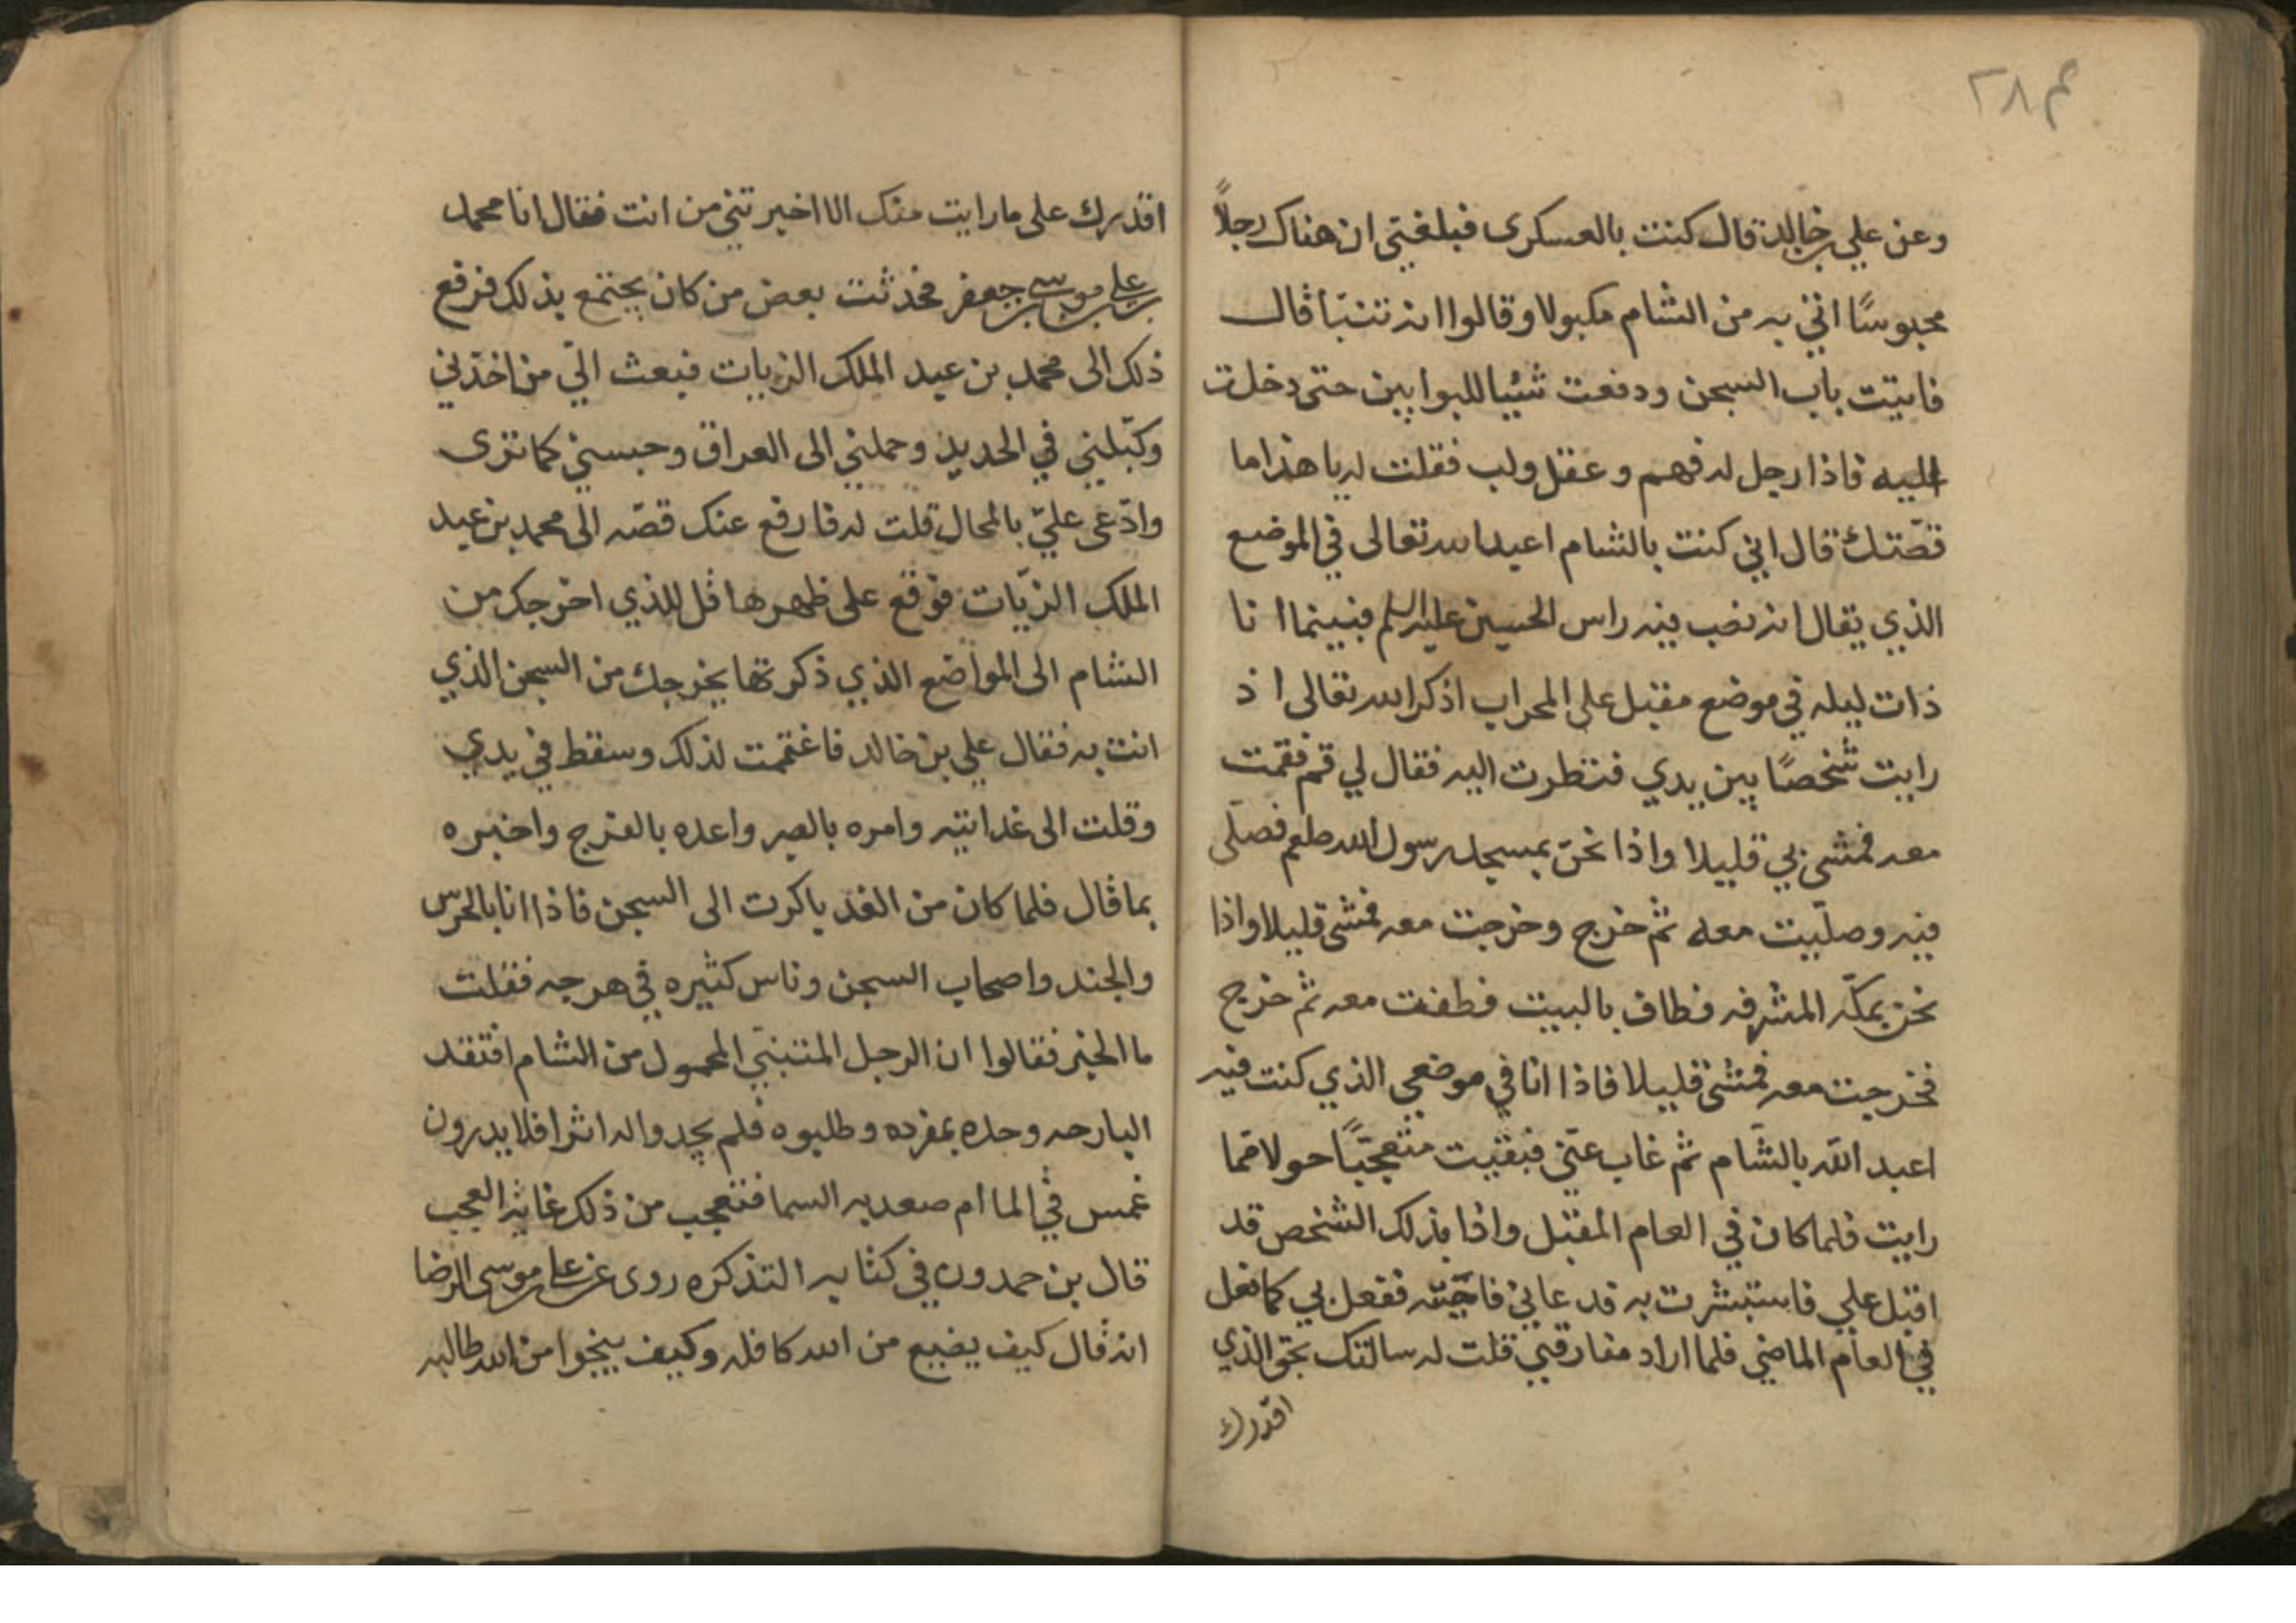 م ٢٨
وعن علي بن خالد قال كنت بالعسكرى فبلغني ان هناك رجلاً
محبوسًا اتي به من الشام مكبولا وقالوا انه تنبّا قال
فاتيت باب السجن ودفعت شيئا للبوابين حتى دخلت
اليه فاذا رجل له فهم وعقل ولب فقلت له يا هذا ما
قصّتك قال اني كنت بالشام اعبد الله تعالى في الموضع
الذي يقال انه نصب فيه راس الحسين عليه السلم فبينما انا
ذات ليله في موضع مقبل على المحراب اذكر الله تعالى اذ
رايت شخصًا بين يدي فنظرت اليه فقال لي قم فقمت
معه فمشى بي قليلا واذا نحن بمسجد رسول الله صلعم فصلّى
فيه وصلّيت معه ثم خرج وخرجت معه فمشى قليلا واذا
نحن بمكّه المشرفه فطاف بالبيت فطفت معه ثم خرج
فخرجت معه فمشى قليلا فاذا انا في موضعي الذي كنت فيه
اعبد الله بالشام ثم غاب عنّي فبقيت متعجّبًا حولا مما
رايت فلما كان في العام المقبل واذا بذلك الشخص قد
اقبل علي فاستبشرت به قد عاني فاجبته ففعل بي كما فعل
في العام الماضي فلما اراد مفارقتي قلت له سالتك بحق الذي
اقدرك
اقدرك على ما رايت منك الا اخبرتني من انت فقال انا محمد
بن علي بن موسى بن جعفر فحدثت بعض من كان يجتمع بذلك فرفع
ذلك الى محمد بن عبد الملك الزيات فبعث اليّ من اخذني
وكبّلني في الحديد وحملني الى العراق وحبسني كما ترى
وادّعى عليّ بالمحال قلت له فارفع عنك قصّه الى محمد بن عبد
الملك الزيّات فوقع على ظهرها قل للذي اخرجك من
الشام الى المواضع الذي ذكرتها يخرجك من السجن الذي
انت به فقال علي بن خالد فاغتممت لذلك وسقط في يدي
وقلت الى غد اتيه وامره بالصبر واعده بالفرج واخبره
بما قال فلما كان من الغد باكرت الى السجن فاذا انا بالحرس
والجند واصحاب السجن وناس كثيره في هرجه فقلت
ما الخبر فقالوا ان الرجل المتنبي المحمول من الشام افتقد
البارحه وحده بمفرده وطلبوه فلم يجدوا له اثرا فلا يدرون
غمس في الما ام صعد به السما فتعجب من ذلك غاية العجب
قال بن حمدون في كتابه التذكره روى عن علي بن موسى الرضا
انه قال كيف يضيع من الله كافله وكيف ينجوا من الله طالبه